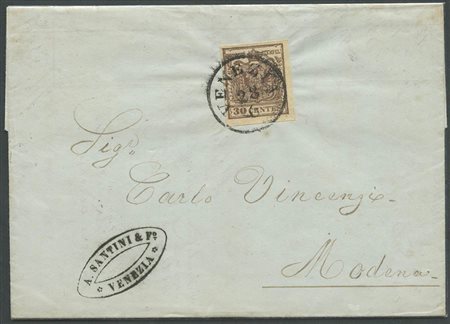 VENEZIA
23
30 CENTES
Sigr
Carlo Vincenzi
Modena
A. SANTINI & Fo
VENEZIA